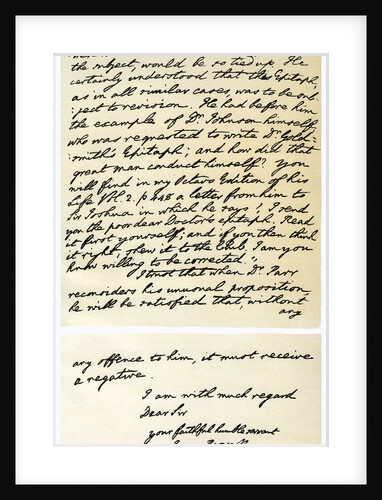 the subject, would be so tied up. He
certainly understood that the Epitaph,
as in all similar cases, was to be sub-
:ject to revision. He had before him
the example of Dr. Johnson himself,
who was requested to write Dr. Gold-
:smith's Epitaph; and how did that
great man conduct himself? You
will find in my Octavo Edition of his
Life Vol. 2. p 448 a letter from him to
Sir Joshua in which he says "I send
you the poor dear Doctor's epitaph. Read
it first yourself; and if you then think
it right, shew it to the Club. I am you
know willing to be corrected."
I trust that when Dr. Parr
reconsiders his unusual proposition
he will be satisfied that, without
any
any offence to him, it must receive
a negative.
I am with much regard
Dear Sir
your faithful humble servant